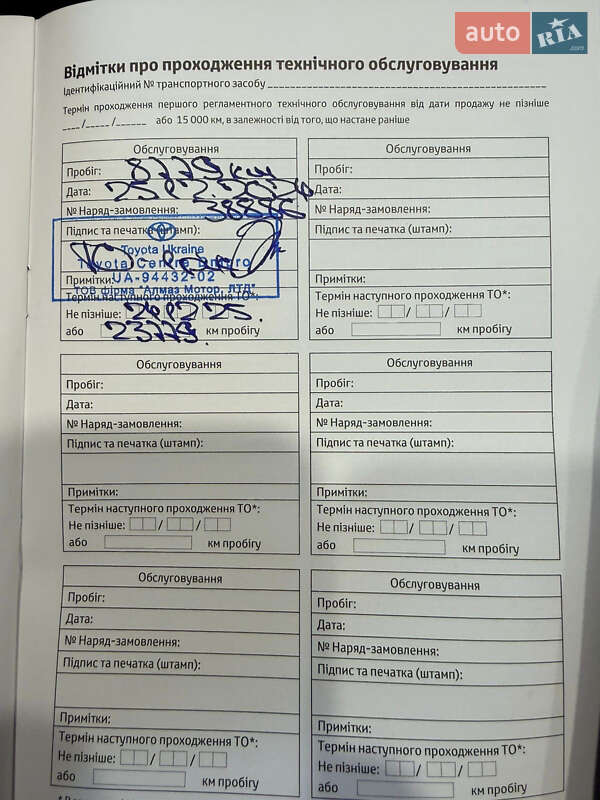 auto RIA .com
Відмітки про проходження технічного обслуговування
Ідентифікаційний № транспортного засобу
Термін проходження першого регламентного технічного обслуговування від дати продажу не пізніше
/ / або 15 000 км, в залежності від того, що настане раніше
Обслуговування
Пробіг: 8779 км
Дата: 25.12.2024
№ Наряд-замовлення: 38886
Підпис та печатка (штамп):
Toyota Ukraine
Toyota Centre Dnipro
UA-94432-02
ТОВ фірма "Алмаз Мотор, ЛТД"
Примітки:
Термін наступного проходження ТО*:
Не пізніше: 24.12.25.
або 23779. км пробігу
Обслуговування
Пробіг:
Дата:
№ Наряд-замовлення:
Підпис та печатка (штамп):
Примітки:
Термін наступного проходження ТО*:
Не пізніше: / /
або км пробігу
Обслуговування
Пробіг:
Дата:
№ Наряд-замовлення:
Підпис та печатка (штамп):
Примітки:
Термін наступного проходження ТО*:
Не пізніше: / /
або км пробігу
Обслуговування
Пробіг:
Дата:
№ Наряд-замовлення:
Підпис та печатка (штамп):
Примітки:
Термін наступного проходження ТО*:
Не пізніше: / /
або км пробігу
Обслуговування
Пробіг:
Дата:
№ Наряд-замовлення:
Підпис та печатка (штамп):
Примітки:
Термін наступного проходження ТО*:
Не пізніше: / /
або км пробігу
Обслуговування
Пробіг:
Дата:
№ Наряд-замовлення:
Підпис та печатка (штамп):
Примітки:
Термін наступного проходження ТО*:
Не пізніше: / /
або км пробігу